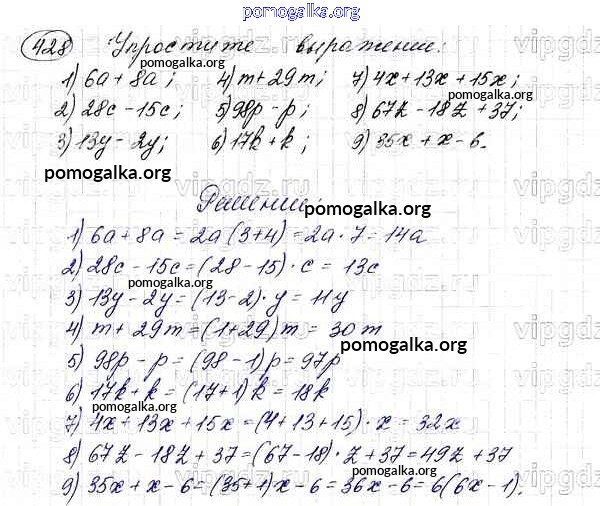 pomogalka.org
428 Упростите выражение:
1) 6a + 8a; 4) m + 29m; 7) 4x + 13x + 15x;
2) 28c - 15c; 5) 98p - p; 8) 67z - 18z + 37;
3) 13y - 2y; 6) 17k + k; 9) 35x + x - 6.
pomogalka.org
Решение
pomogalka.org
1) 6a + 8a = 2a (3+4) = 2a · 7 = 14a
2) 28c - 15c = (28 - 15) · c = 13c
pomogalka.org
3) 13y - 2y = (13-2) · y = 11y
4) m + 29m = (1+29) m = 30m
pomogalka.org
5) 98p - p = (98 - 1)p = 97p
6) 17k + k = (17+1) k = 18k
pomogalka.org
7) 4x + 13x + 15x = (4+13+15) · x = 32x
8) 67z - 18z + 37 = (67-18) · z + 37 = 49z + 37
pomogalka.org
9) 35x + x - 6 = (35+1)x - 6 = 36x - 6 = 6(6x - 1).